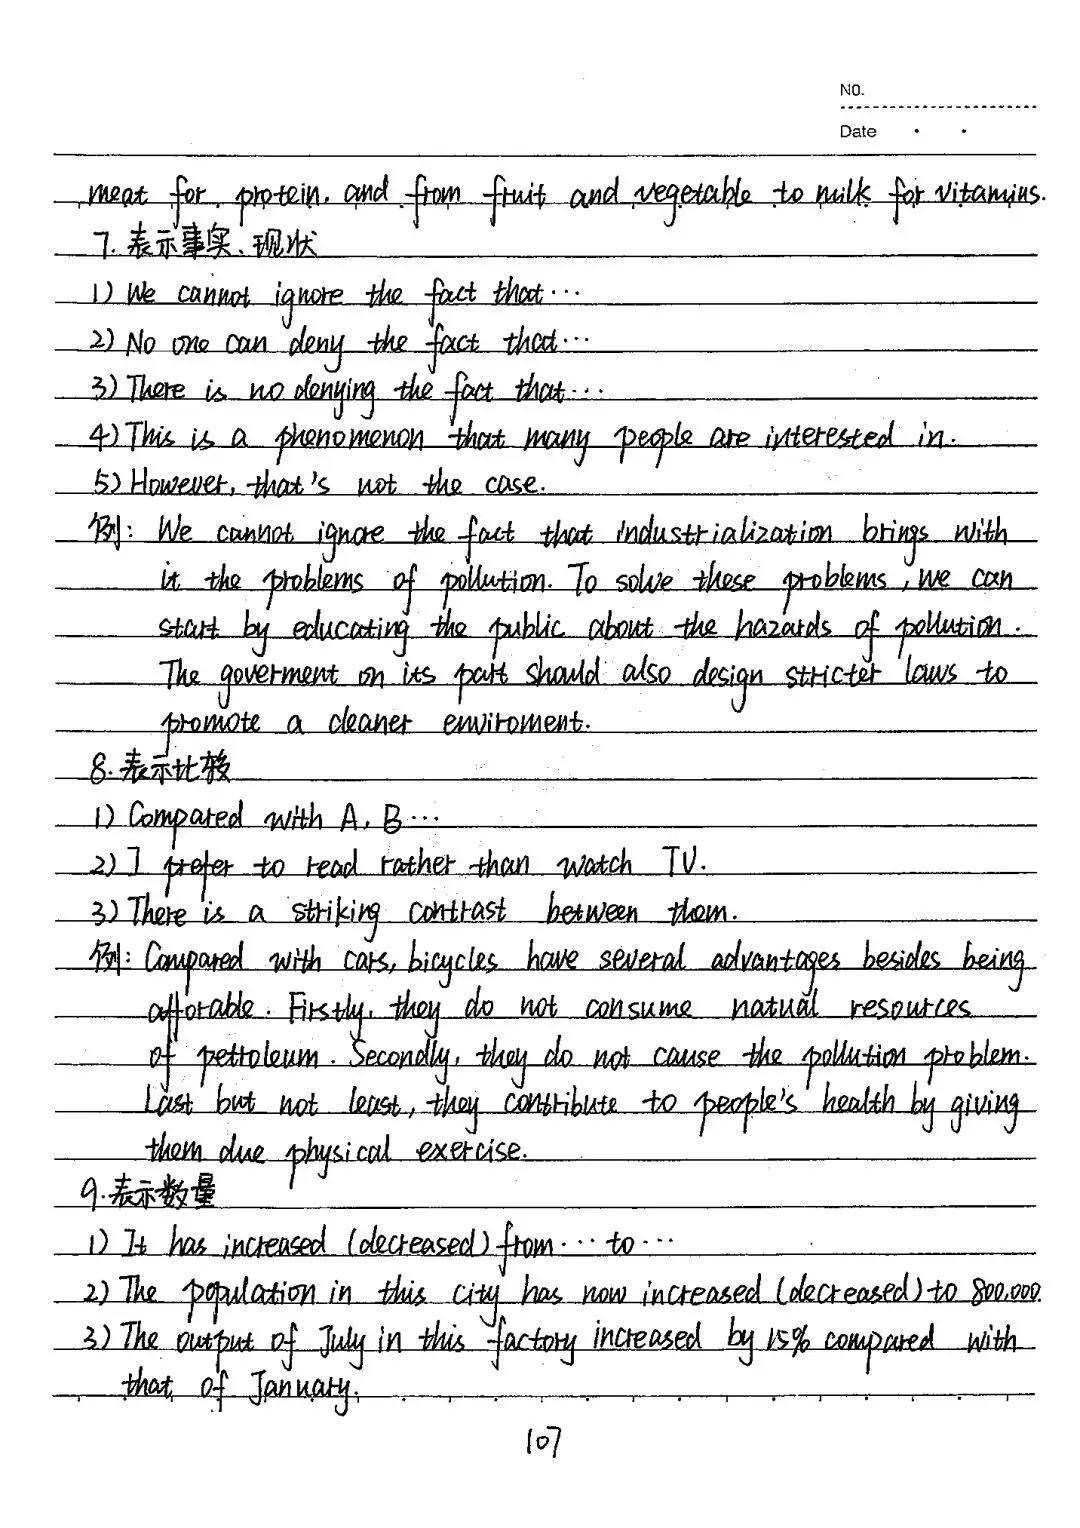 NO.
Date
meat for protein, and from fruit and vegetable to milk for vitamins.
7. 表示事实、现状
1) We cannot ignore the fact that…
2) No one can deny the fact that…
3) There is no denying the fact that…
4) This is a phenomenon that many people are interested in.
5) However, that's not the case.
例: We cannot ignore the fact that industrialization brings with
it the problems of pollution. To solve these problems, we can
start by educating the public about the hazards of pollution.
The goverment on its part should also design stricter laws to
promote a cleaner enviroment.
8. 表示比较
1) Compared with A, B…
2) I prefer to read rather than watch TV.
3) There is a striking contrast between them.
例: Compared with cars, bicycles have several advantages besides being
afforable. Firstly, they do not consume natual resources
of petroleum. Secondly, they do not cause the pollution problem.
Last but not least, they contribute to people's health by giving
them due physical exercise.
9. 表示数量
1) It has increased (decreased) from…to…
2) The population in this city has now increased (decreased) to 800,000.
3) The output of July in this factory increased by 15% compared with
that of January.
107